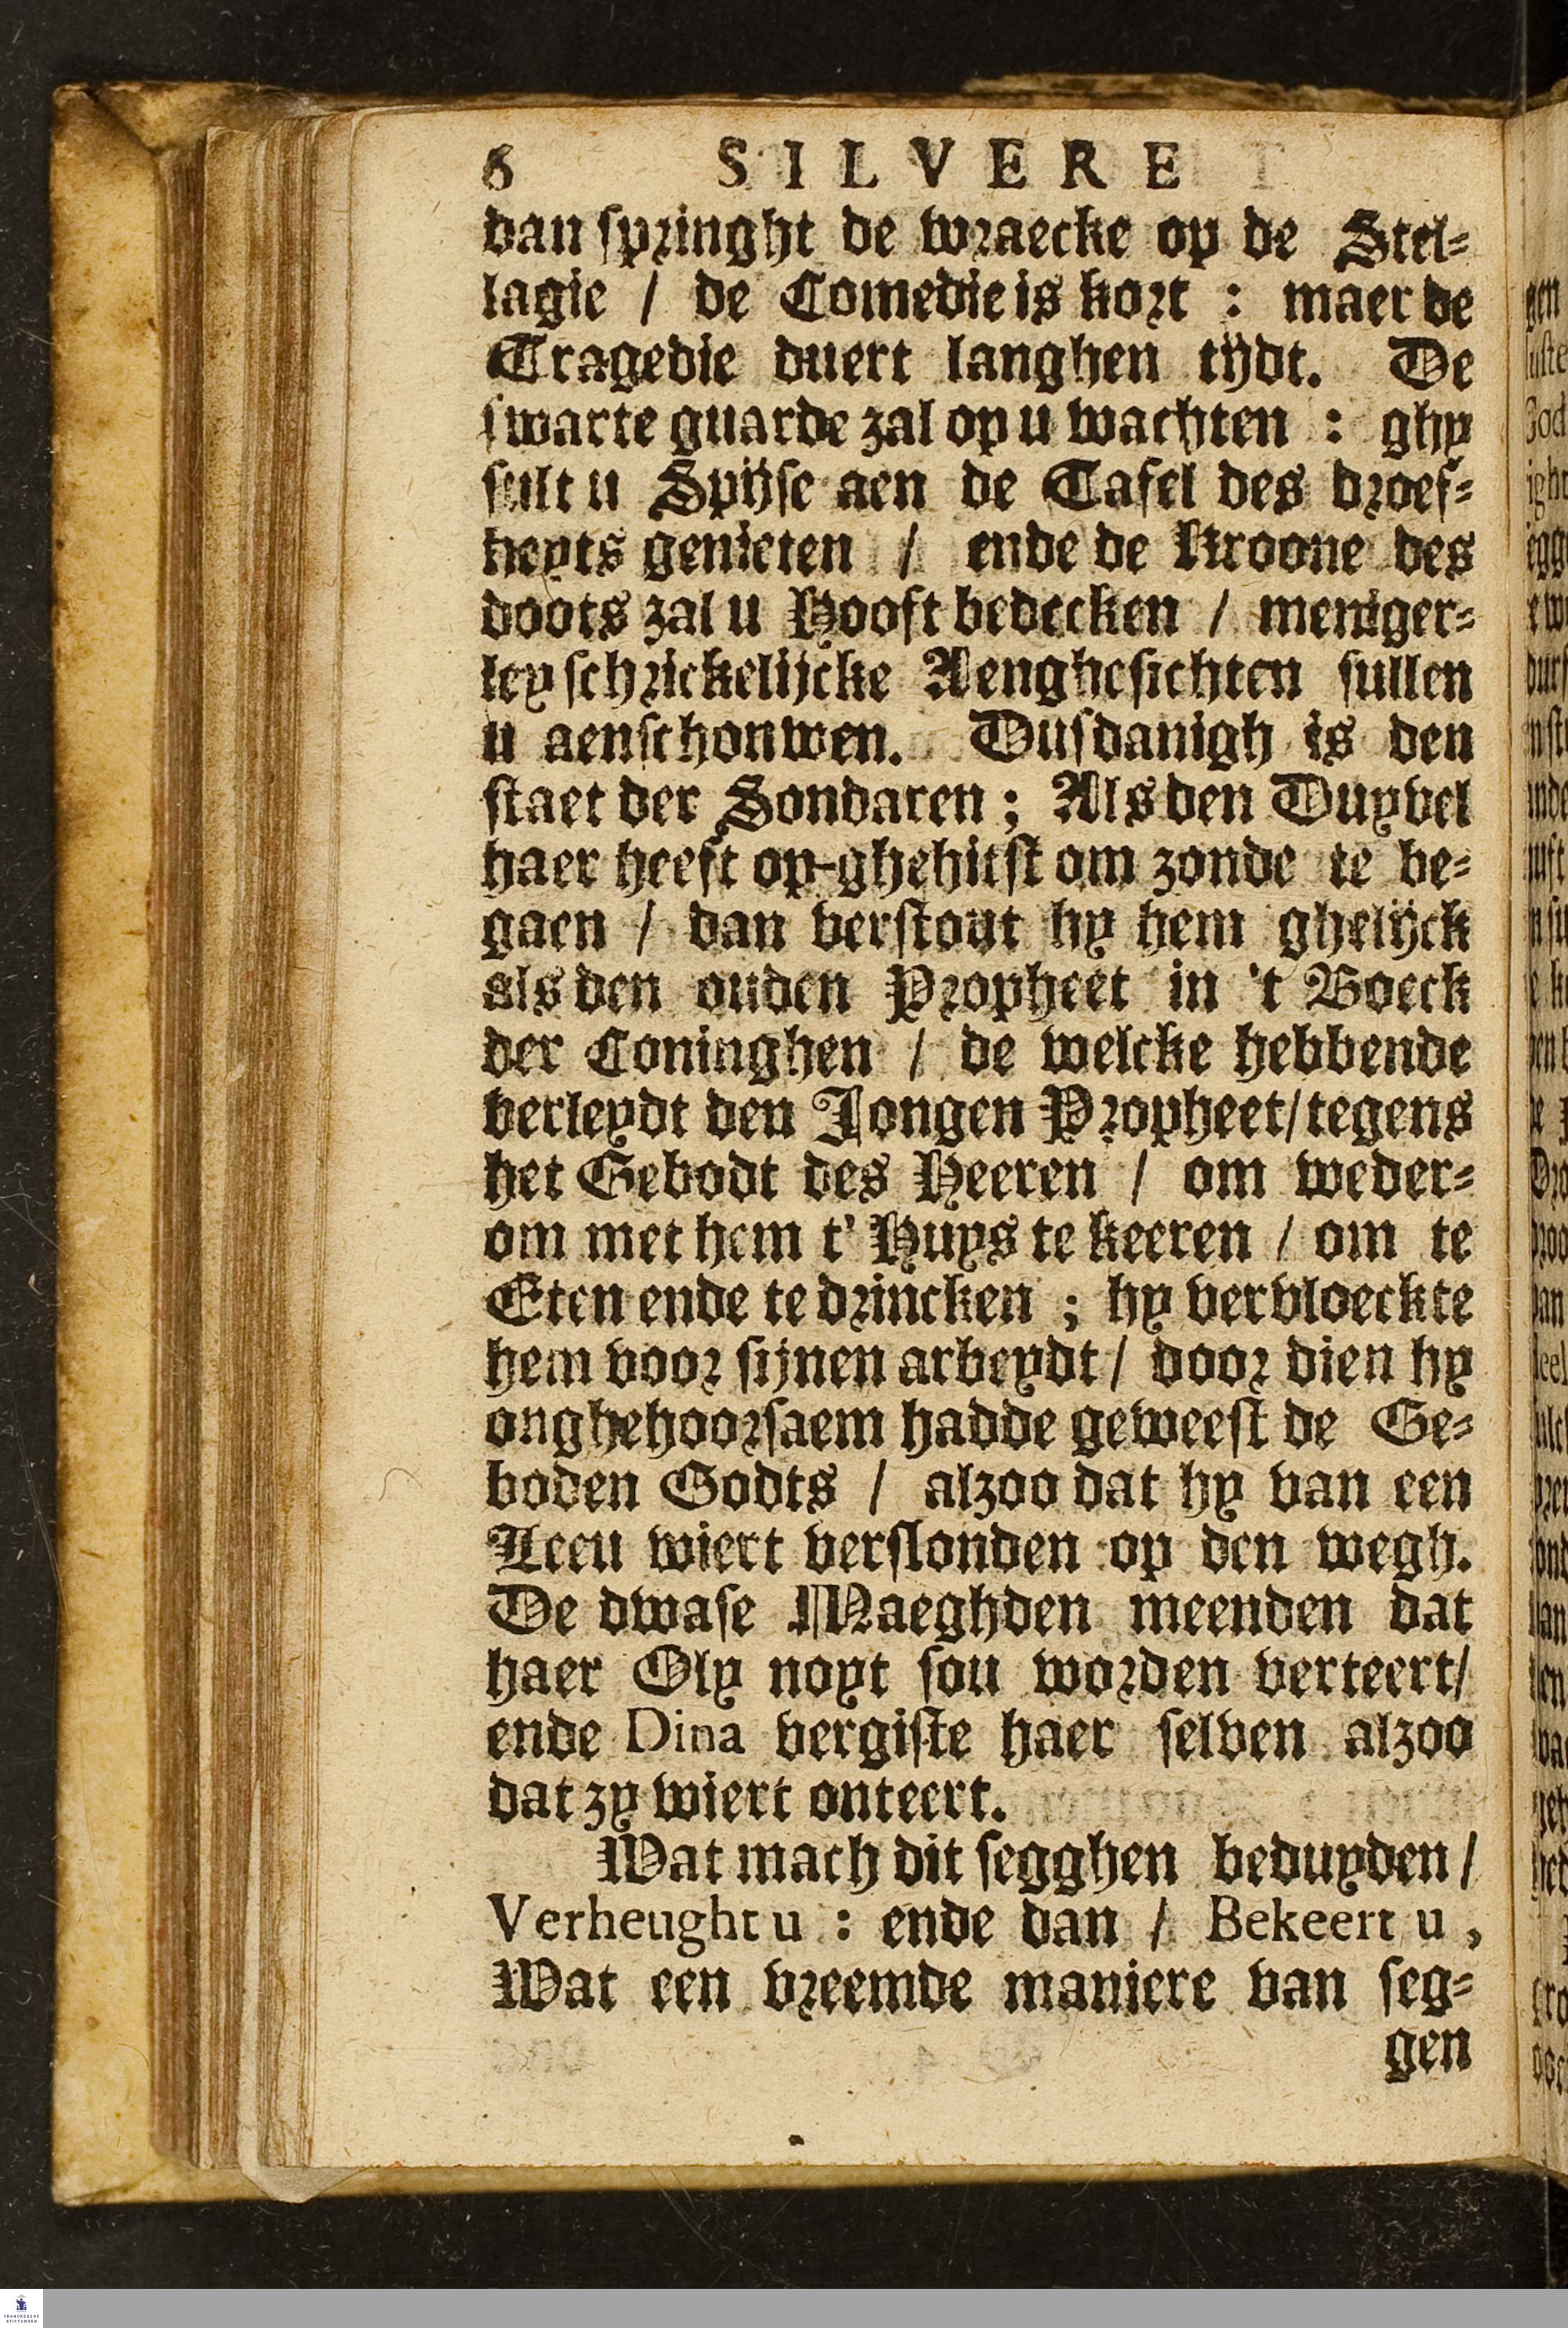 6 SILVERE
dan springht de wraecke op de Stel-
lagie / de Comedie is kort : maer de
Tragedie duert langhen tijdt. De
swarte guarde zal op u wachten : ghy
sult u Spijse aen de Tafel des droef-
heyts genieten / ende de Kroone des
doots zal u Hooft bedecken / meniger-
ley schrickelijcke Aenghesichten sullen
u aenschouwen. Dusdanigh is den
staet der Sondaren ; Als den Duyvel
haer heeft op-ghehitst om zonde te be-
gaen / dan verstout hy hem ghelijck
als den ouden Propheet in 't Boeck
der Coninghen / de welcke hebbende
verleydt den Jongen Propheet / tegens
het Gebodt des Heeren / om weder-
om met hem t' Huys te keeren / om te
Eten ende te drincken ; hy vervloeckte
hem voor sijnen arbeydt / door dien hy
onghehoorsaem hadde geweest de Ge-
boden Godts / alzoo dat hy van een
Leeu wiert verslonden op den wegh.
De dwase Maeghden meenden dat
haer Oly noyt sou worden verteert /
ende Dina vergiste haer selven alzoo
dat zy wiert onteert.
Wat mach dit segghen beduyden /
Verheught u : ende dan / Bekeert u ,
Wat een vreemde maniere van seg-
gen